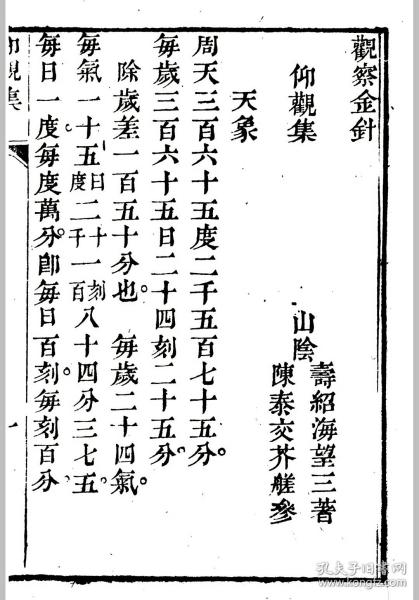 觀察金針
仰觀集
山陰
壽紹海望三著
陳泰交芥艖參
天象
周天三百六十五度二千五百七十五分。
每歲三百六十五日二十四刻二十五分。
除歲差一百五十分也。每歲二十四氣。
每氣一十五日度二十一刻千一百八十四分三七五。
每日一度每度萬分。卽每日百刻。每刻百分
仰觀集
一
孔夫子旧书网